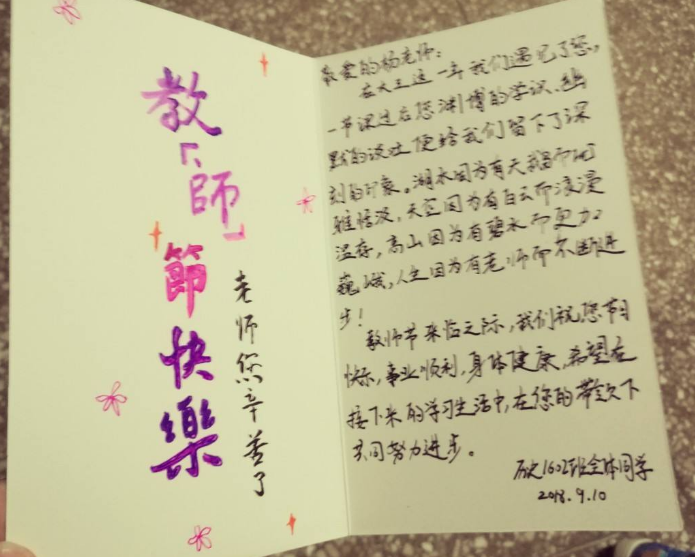 教「師」節快樂
老师您辛苦了
敬爱的杨老师：
在大三这一年我们遇见了您，
一节课过后您渊博的学识、幽
默的谈吐便给我们留下了深
刻的印象。湖水因为有天鹅而
雅恬淡，天空因为有白云而浪漫
温存，高山因为有碧水而更加
巍峨，人生因为有老师而不断进
步！
教师节来临之际，我们祝您节日
快乐，事业顺利，身体健康，希望在
接下来的学习生活中，在您的带领下
共同努力进步。
1602班全体同学
2018.9.10